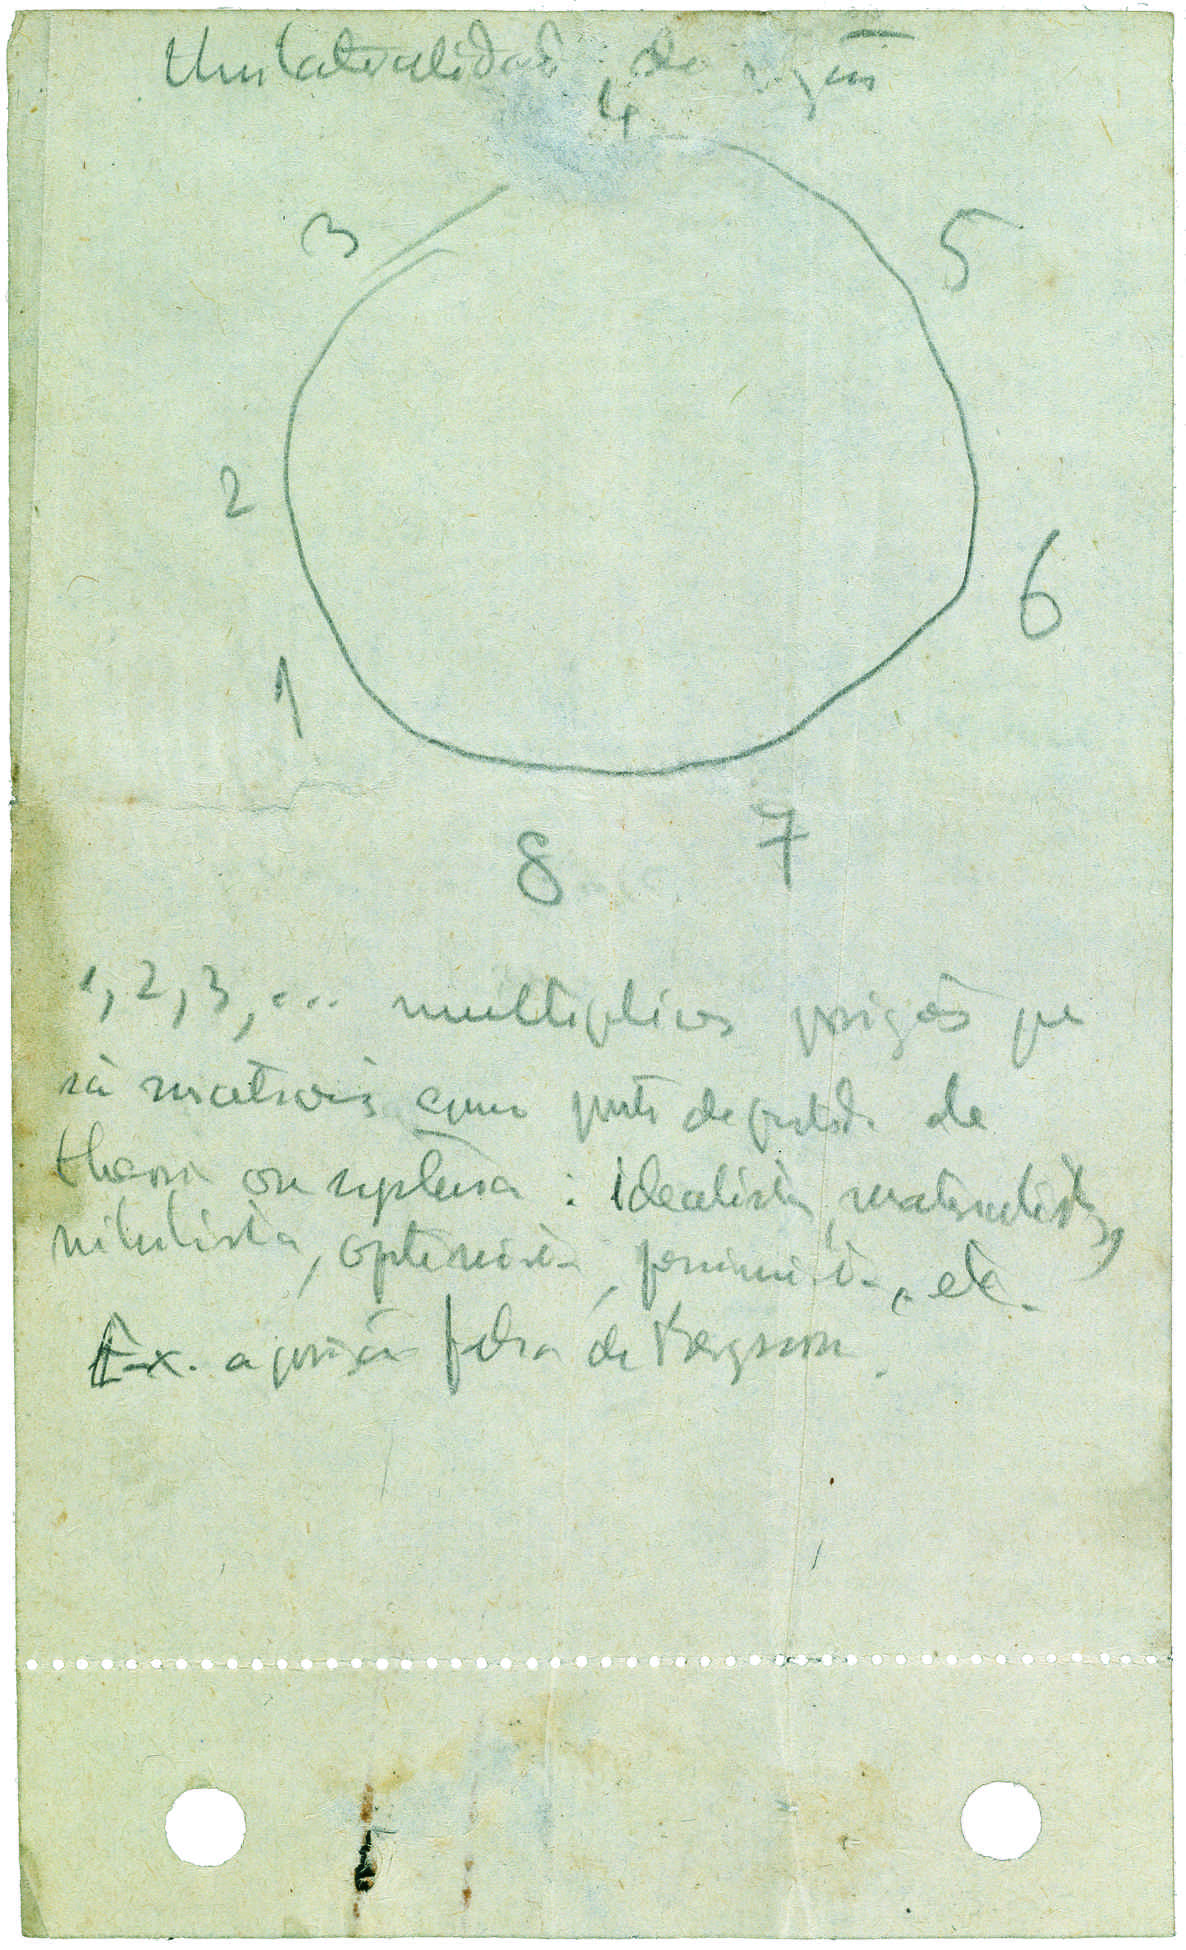 Unilateralidade da razão
4
3
5
2
6
1
7
8
1, 2, 3, ... multiplices posições que
são como ponto de partida de
theoria ou systema : idealista, materialista,
nihilista, optimista, pessimista, etc.
Ex. a posição de Bergson.